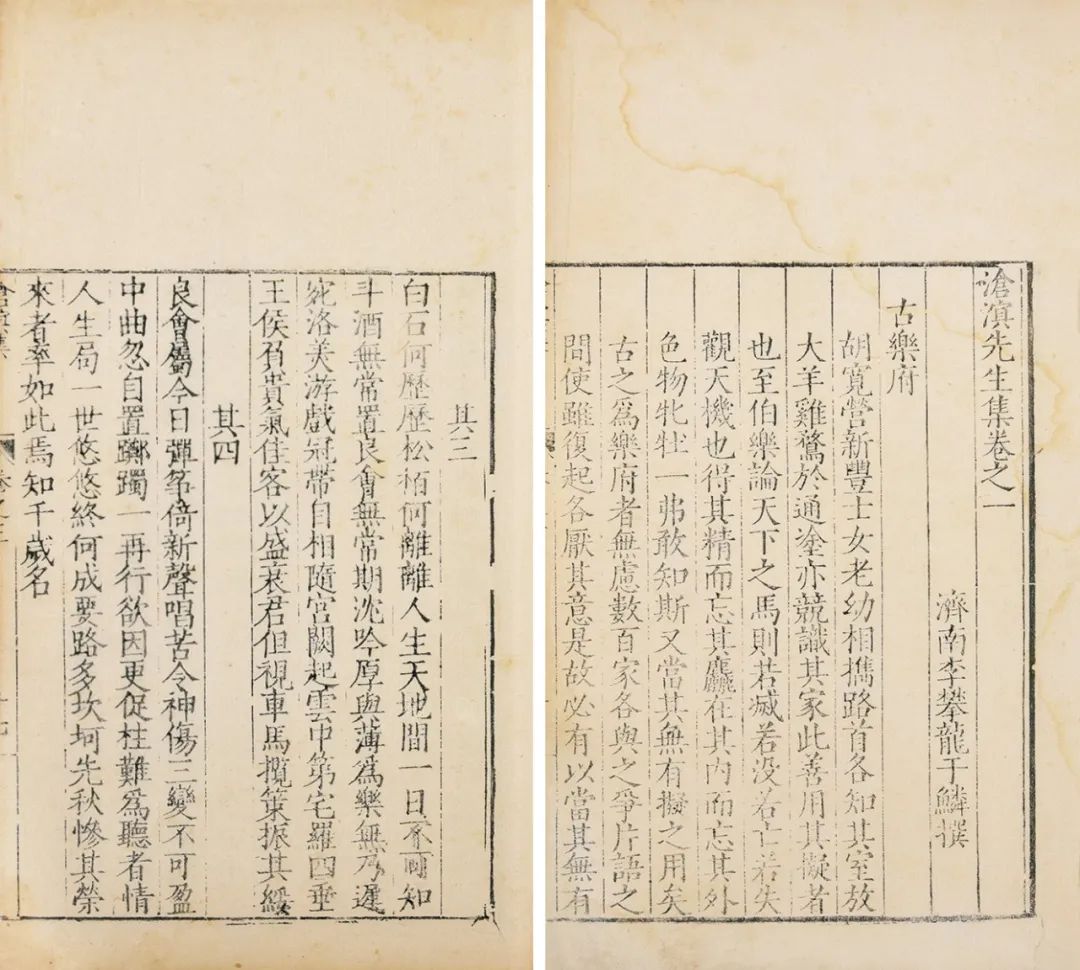 滄溟先生集卷之一
濟南李攀龍于鱗撰
古樂府
胡寬營新豐士女老幼相攜路首各知其室放
犬羊雞鶩於通塗亦競識其家此善用其擬者
也至伯樂論天下之馬則若滅若没若亡若失
觀天機也得其精而忘其麤在其内而忘其外
色物牝牡一弗敢知斯又當其無有擬之用矣
古之爲樂府者無慮數百家各與之爭片語之
間使雖復起各厭其意是故必有以當其無有
其三
白石何歷歷松栢何離離人生天地間一日不可知
斗酒無常置良會無常期沈吟厚與薄爲樂無乃遲
宛洛美游戲冠帶自相隨宮闕起雲中第宅羅四垂
王侯負貴氣佳客以盛衰君但視車馬攬策振其綏
其四
良會屬今日彈箏倚新聲唱苦令神傷三變不可盈
中曲忽自置躑躅一再行欲因更促柱難爲聽者情
人生局一世悠悠終何成要路多坎坷先秋慘其榮
來者率如此焉知千歲名